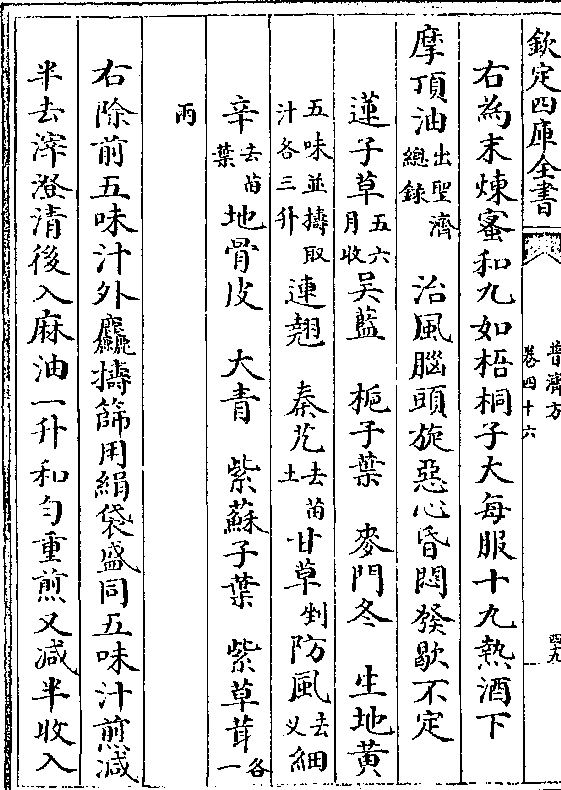 欽定四庫全書
普濟方
卷四十六
四九
右為末煉蜜和丸如梧桐子大每服十丸熱酒下
摩頂油出聖濟總錄 治風腦頭旋惡心昏悶發歇不定
蓮子草五六月收吳藍 梔子葉 麥門冬 生地黃
五味並擣取汁各三升連翹 秦艽去苗土甘草剉防風去义細
辛去苗葉地骨皮 大青 紫蘇子葉 紫草茸各一
兩
右除前五味汁外麤擣篩用絹袋盛同五味汁煎減
半去滓澄清後入麻油一升和勻重煎又減半收入